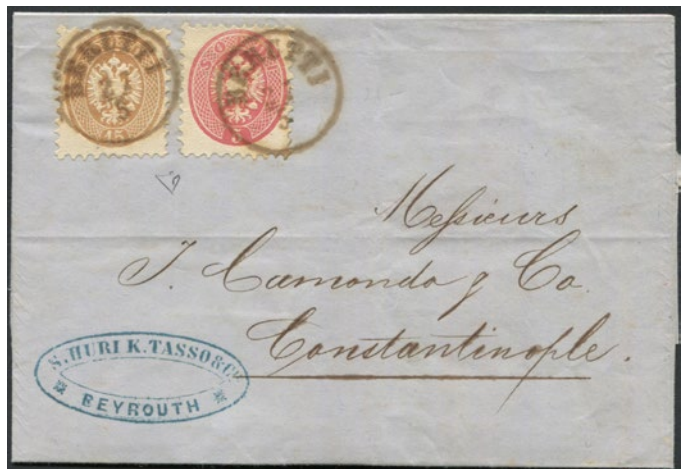 BERUTTI
BERUTTI
15
5
SOLDI
Messieurs
I. Camondo & Co.
Constantinople.
N. HURI K. TASSO & Co
BEYROUTH